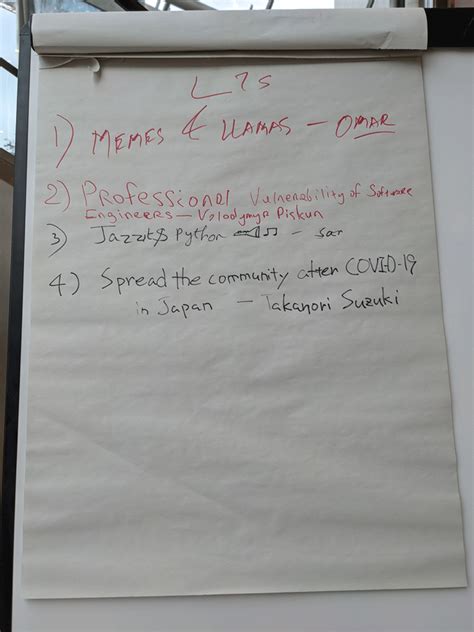 LTs
1) MEMES & LLAMAS - OMAR
2) Professional Vulnerability of Software
Engineers - Volodymyr Piskun
3) Python - sar
4) Spread the community after COVID-19
in Japan - Takanori Suzuki